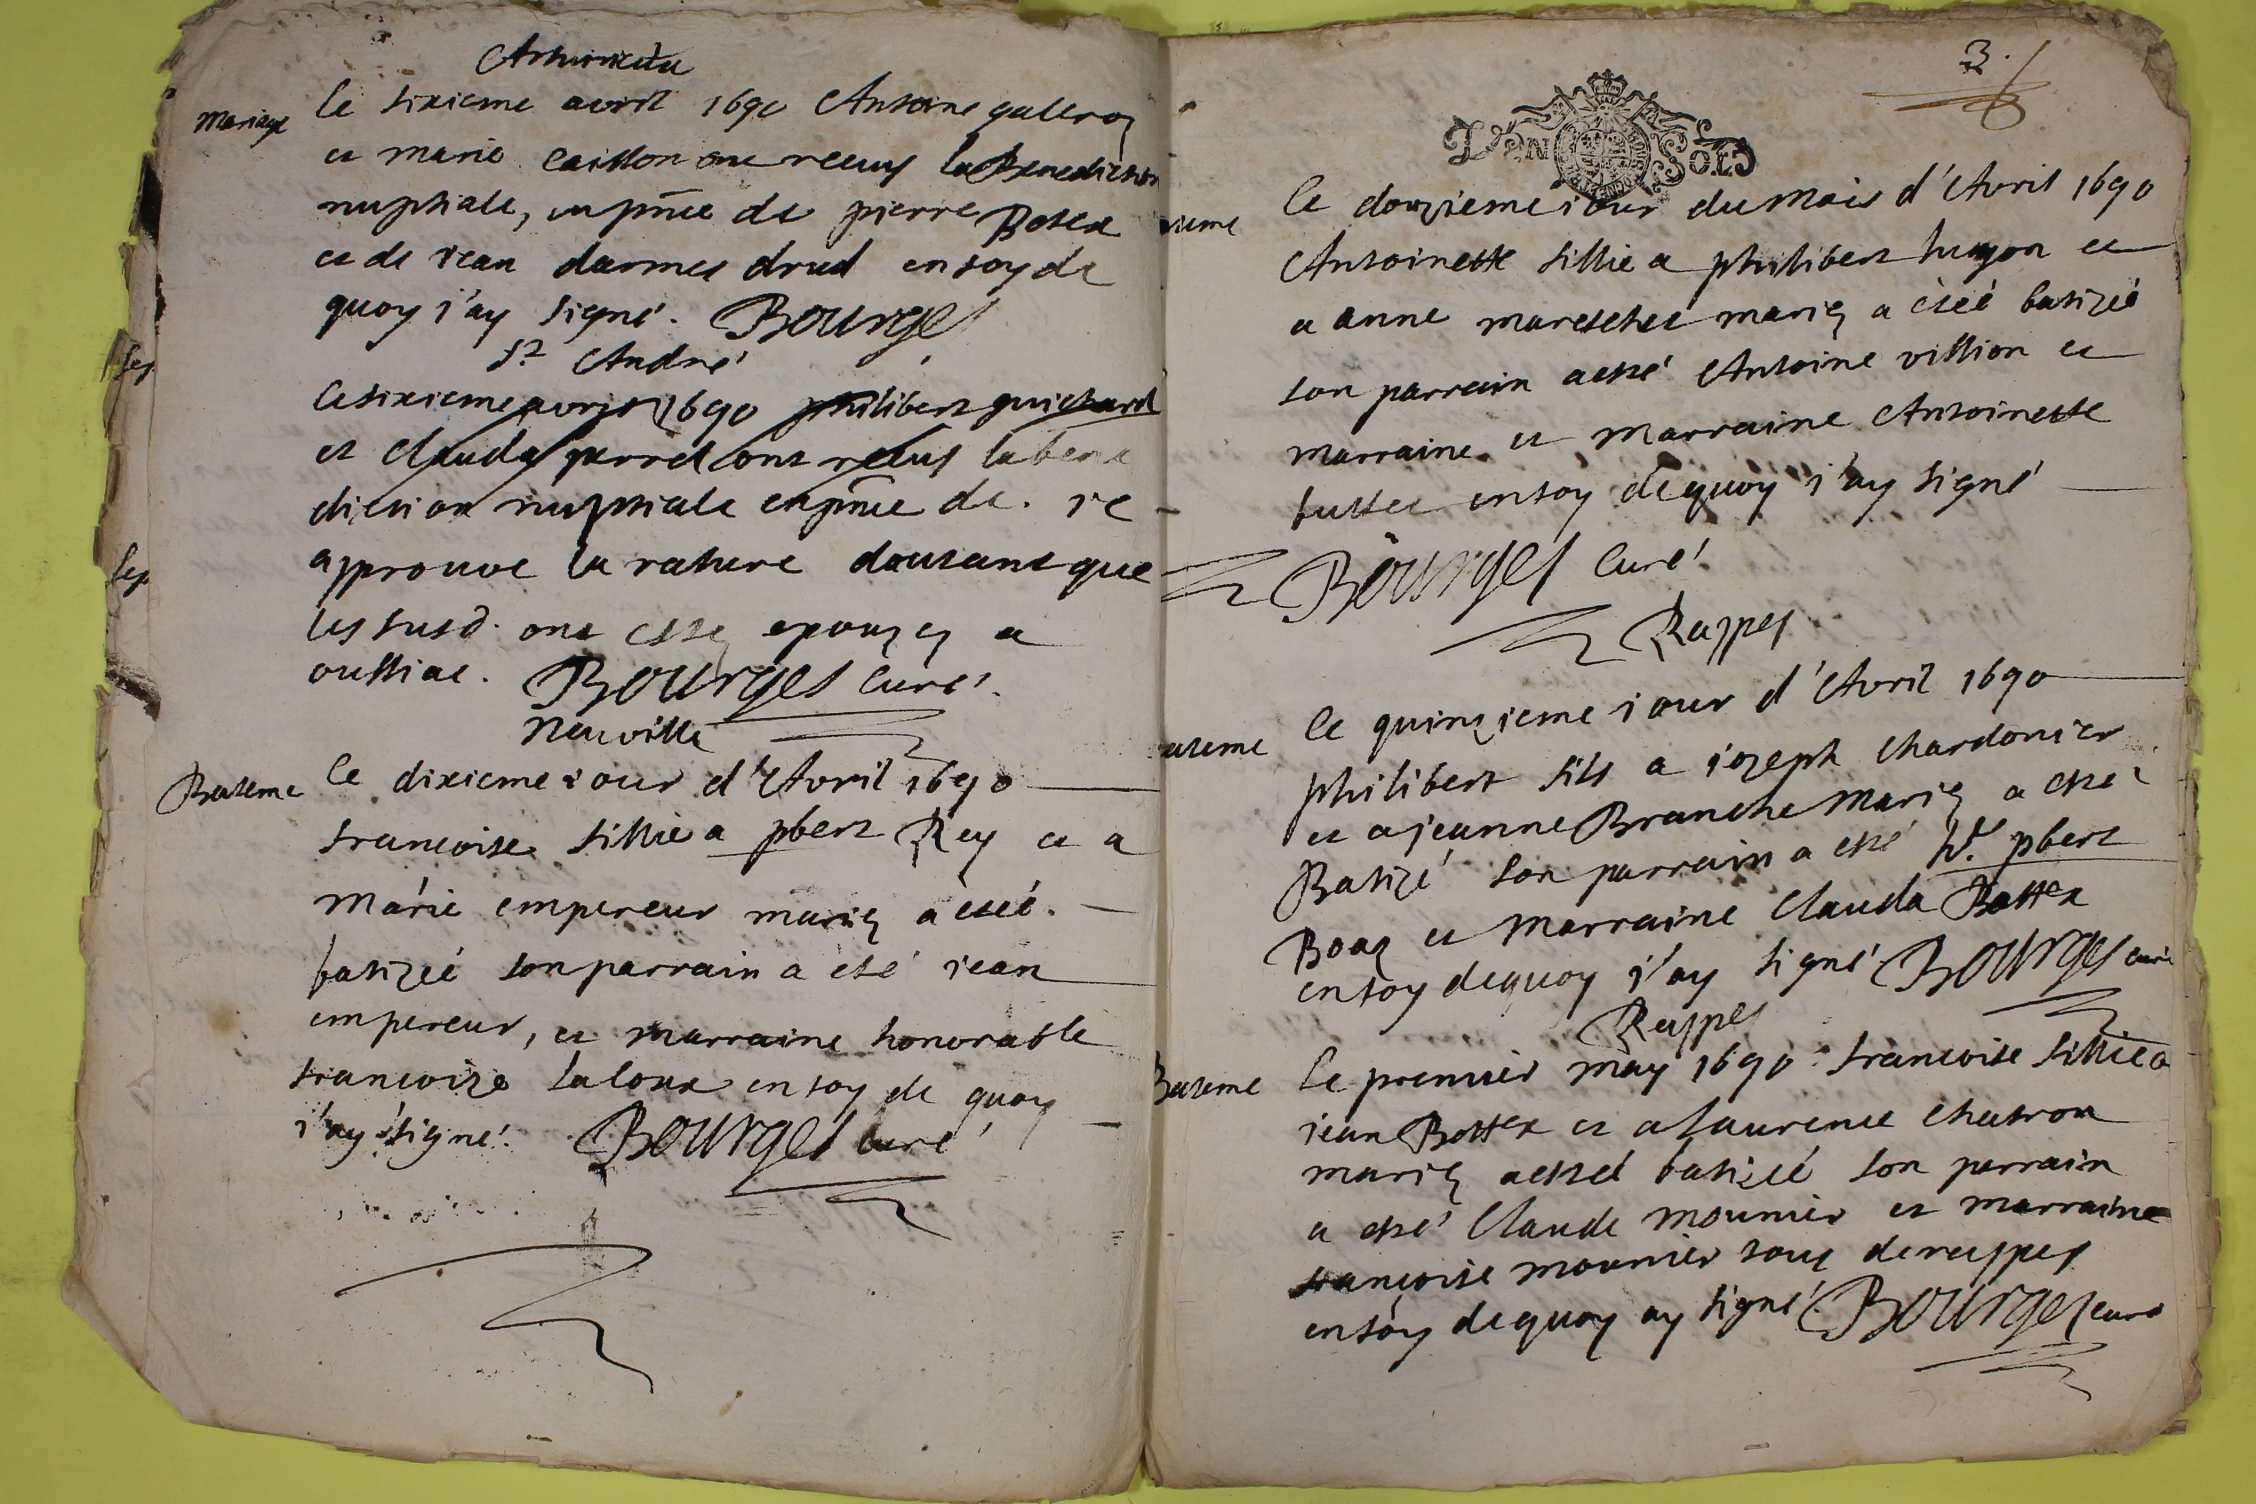 Mariage
le sixieme avril 1690 Antoine galleron
et marie caillon ont receus la Benediction
nuptiale, en pnce de pierre Botex
et de jean darmes drud en foy de
quoy j'ay signé. Bourges
St André
le sixieme avril 1690 philibert guichard
et Clauda perret ont receus la bene
diction nuptiale en pnce de. je
approuve la rature dautant que
les susd. ont esté epouzez a
oussiat. Bourges curé.
Neuville
Bateme
le dixieme jour d'Avril 1690
francoise fillie a pbert Rey et a
Marie empereur mariez a esté.
batizée son parrain a esté jean
empereur, et marraine honorable
francoize laloux en foy de quoy
j'ay signé. Bourges curé
3.
Vn Sols
le douzieme jour du Mois d'Avril 1690
Antoinette fillie a philibert hugon et
a anne mareschet mariez a esté batizée
son parrain a esté Antoine villion et
marraine et marraine Antoinette
en foy de quoy j'ay signé
Bourges curé.
Rappes
ateme
le quinzieme jour d'Avril 1690
philibert fils a jozeph Chardonier
et a jeanne Branche Mariez a esté
Batizé son parrain a esté hr. pbert
Boaz et marraine Clauda Bottex
en foy de quoy j'ay signé Bourges curé
Rappes
Bateme
le premier may 1690. francoise fillie a
jean Bottex et a laurence Chatron
mariez a esté batizée son parrain
a esté Claude mounier et marraine
francoise mounier tous de rappes
en foy de quoy ay signé. Bourges curé